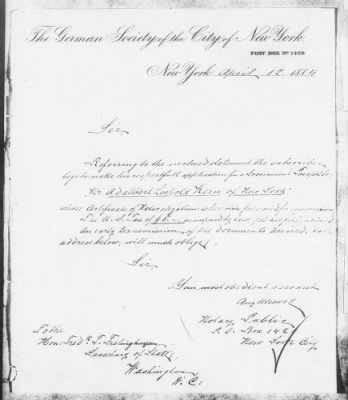 The German Society of the City of New York.
POST BOX No 1429.
New York, April 12 1884
Sir
Referring to the inclosed statement the subscriber
begs to make his respectfull application for a Government Passport
for Adalbert Leopold Kern of New York
whose Certificate of Naturalization
The U.S. Tax of as imposed by law,
An early transmission of the documents desired, to
address below, will much oblige
Sir,
Your most obedient servant
Notary Public
P.O. Box 1429
New York City
To the
Hon. Fred'k T. Frelinghuysen
Secretary of State
Washington
D.C.